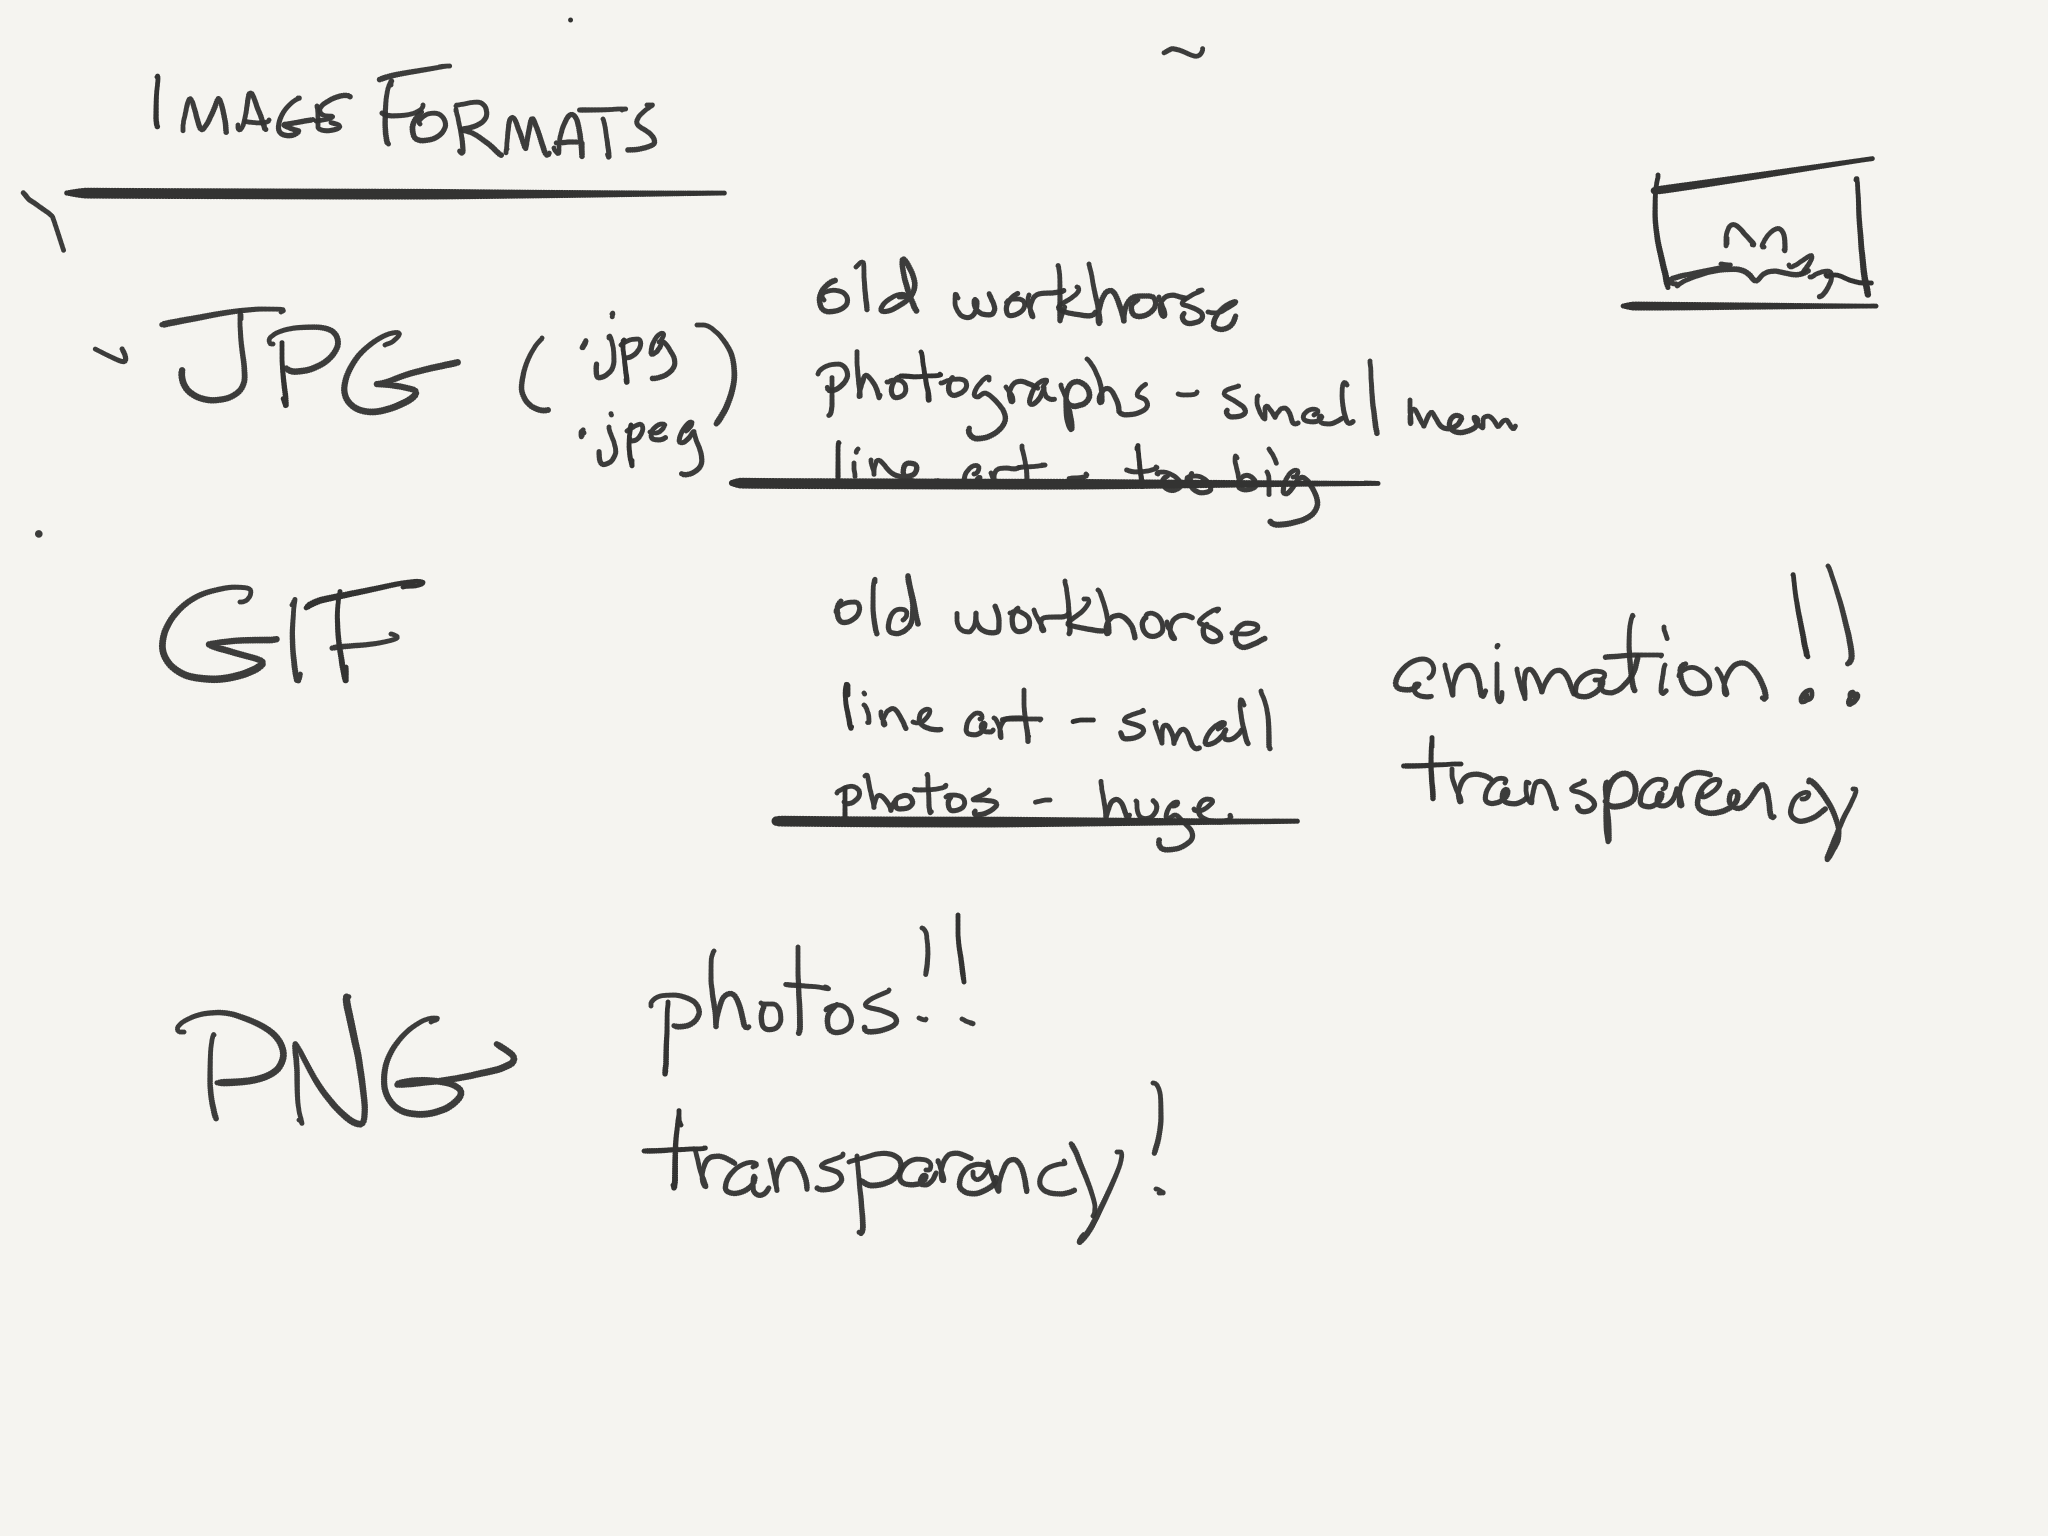 IMAGE FORMATS
JPG (.jpg .jpeg)
old workhorse
photographs - small mem
line art - too big
GIF
old workhorse
line art - small
photos - huge
animation!!
transparency
PNG
photos!!
transparency!